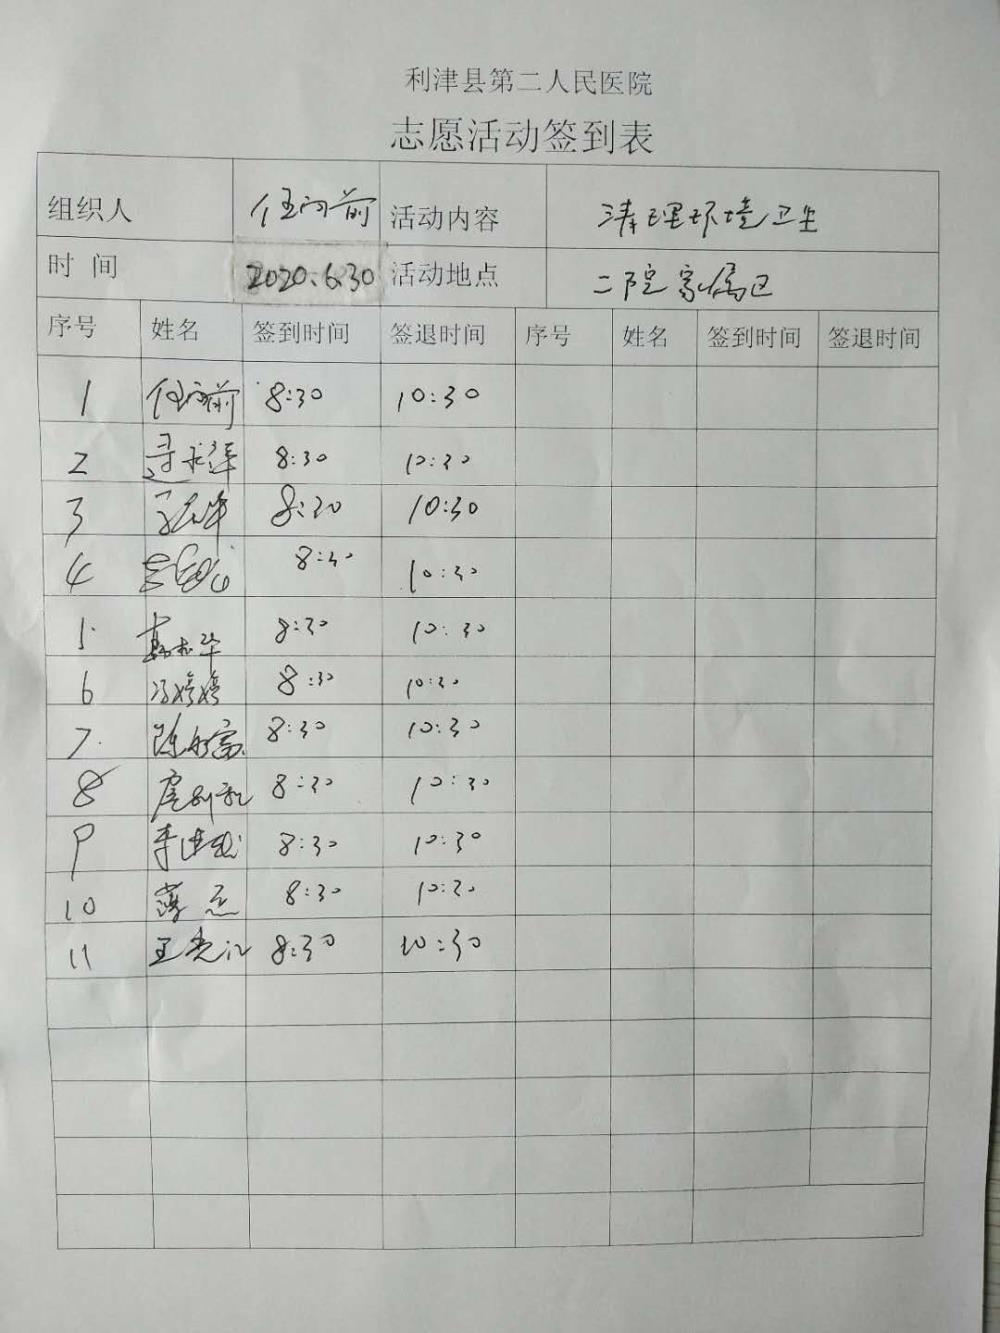 利津县第二人民医院
志愿活动签到表
组织人 任向前 活动内容 清理环境卫生
时 间 2020.6.30 活动地点 二院家属区
序号 姓名 签到时间 签退时间 序号 姓名 签到时间 签退时间
1 任向前 8:30 10:30
2 8:30 10:30
3 8:30 10:30
4 8:30 10:30
5. 8:30 10:30
6 冯婷婷 8:30 10:30
7. 8:30 10:30
8 8:30 10:30
9 8:30 10:30
10 薄杰 8:30 10:30
11 8:30 10:30